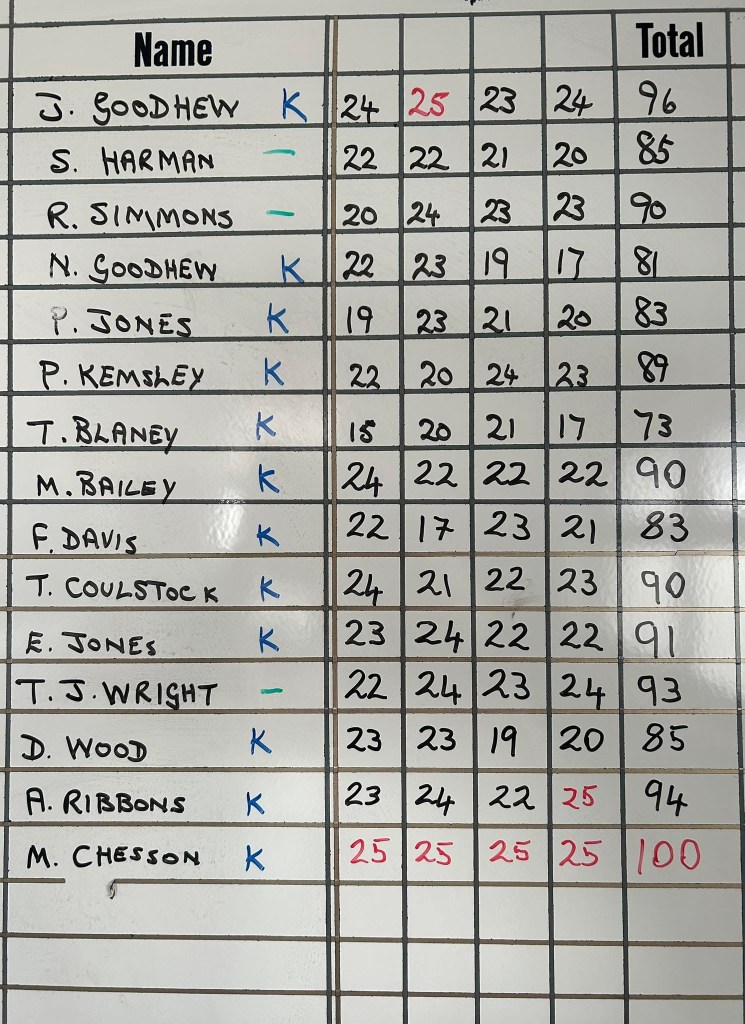 Name Total
J. GOODHEW K 24 25 23 24 96
S. HARMAN – 22 22 21 20 85
R. SIMMONS – 20 24 23 23 90
N. GOODHEW K 22 23 19 17 81
P. JONES K 19 23 21 20 83
P. KEMSLEY K 22 20 24 23 89
T. BLANEY K 15 20 21 17 73
M. BAILEY K 24 22 22 22 90
F. DAVIS K 22 17 23 21 83
T. COULSTOCK K 24 21 22 23 90
E. JONES K 23 24 22 22 91
T. J. WRIGHT – 22 24 23 24 93
D. WOOD K 23 23 19 20 85
A. RIBBONS K 23 24 22 25 94
M. CHESSON K 25 25 25 25 100